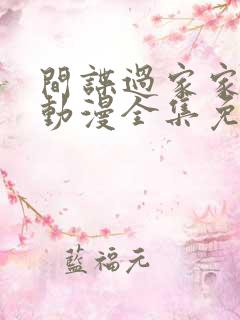 間諜過家家
動漫全集免
藍福元